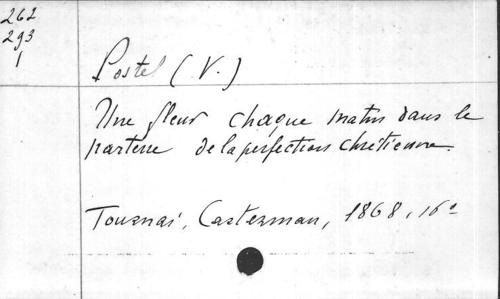 262
293
1
Postel (V.)
Une fleur chaque matin dans le
parterre de la perfection chrétienne.
Tournai, Casterman, 1868, 16°